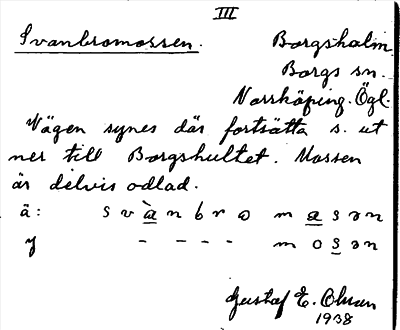 III
Svanbromossen. Borgsholm
Borgs sn.
Norrköping. Ögl.
Vägen synes där fortsätta s. ut
ner till Borgshultet. Mossen
är delvis odlad.
ä: s v à n b r o m a s ə n
y - - - - m o s ə n
Gustaf E. Olsson
1938